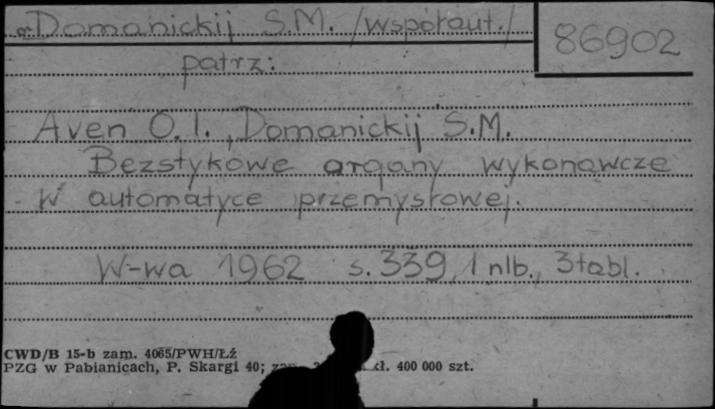 Domanickij S.M. /współaut./
86902
patrz:
Aven O.I., Domanickij S.M.
Bezstykowe organy wykonawcze
w automatyce przemysłowej.
W-wa 1962 s. 339, 1 nlb., 3 tabl.
CWD/B 15-b zam. 4065/PWH/Łź
PZG w Pabianicach, P. Skargi 40; kł. 400 000 szt.